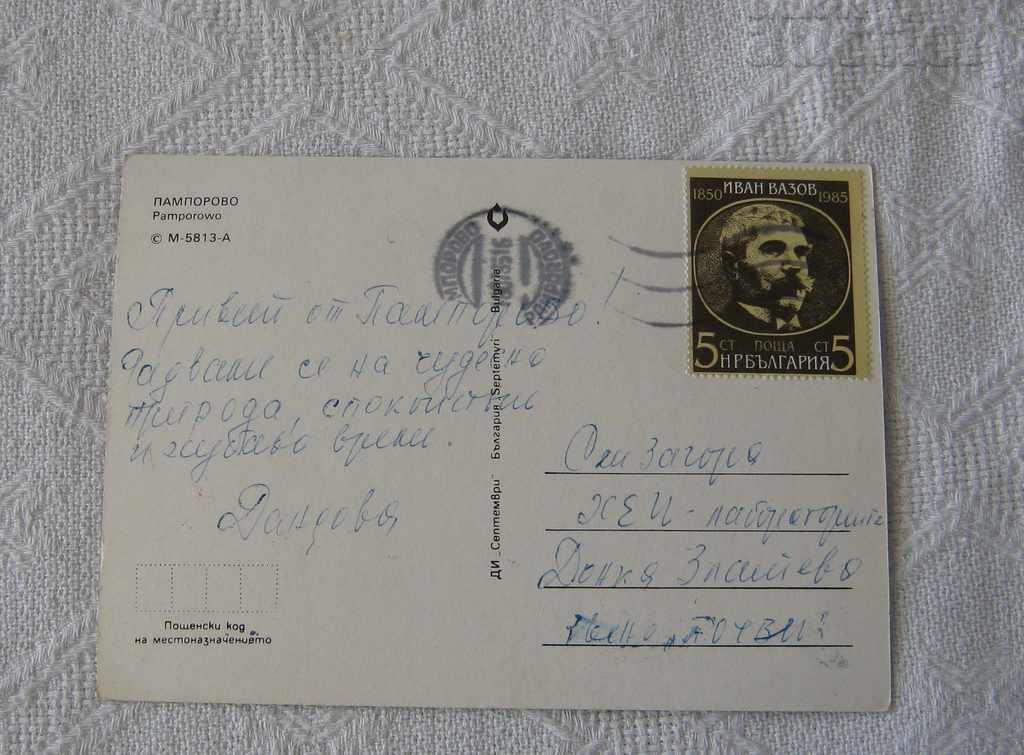 ПАМПОРОВО
Pamporowo
© М-5813-А
ИВАН ВАЗОВ
1850 1985
5 СТ ПОЩА СТ 5
НРБЪЛГАРИЯ
Привет от Пампорово!
Радваме се на чудесна
природа, спокойствие
и хубаво време.
Дандова
ДИ „Септември" България „Septemvri" Bulgaria
Стара Загора
ХЕИ - лабораториите
Донка Златева
„ПОЧВИ"
Пощенски код
на местоназначението